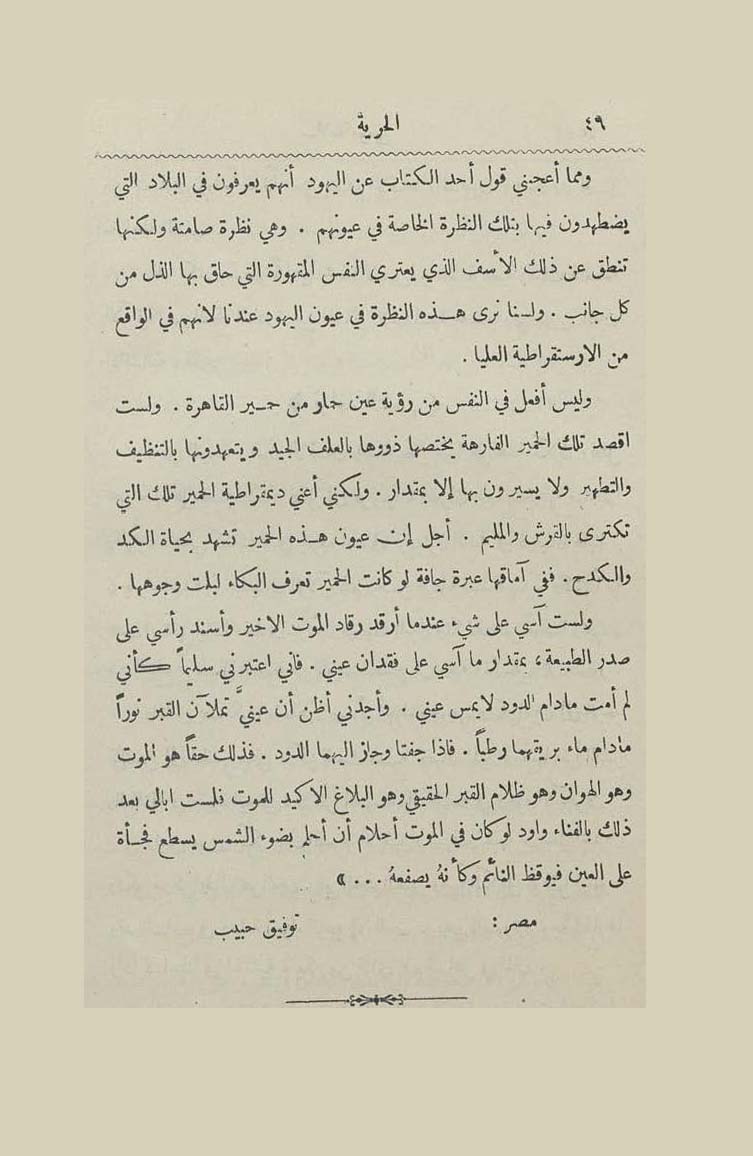 ٤٩ الحرية
ومما أعجبني قول أحد الكتاب عن اليهود أنهم يعرفون في البلاد التي
يضطهدون فيها بتلك النظرة الخاصة في عيونهم . وهي نظرة صامتة ولكنها
تنطق عن ذلك الأسف الذي يعتري النفس المقهورة التي حاق بها الذل من
كل جانب . ولسنا نرى هذه النظرة في عيون اليهود عندنا لانهم في الواقع
من الارستقراطية العليا .
وليس أفعل في النفس من رؤية عين حمار من حمير القاهرة . ولست
اقصد تلك الحمير الفارهة يختصها ذووها بالعلف الجيد ويتعهدونها بالتنظيف
والتطهير ولا يسيرون بها إلا بمقدار . ولكني أعني ديمقراطية الحمير تلك التي
تكترى بالقرش والمليم . أجل إن عيون هذه الحمير تشهد بحياة الكد
والكدح . ففي آماقها عبرة جافة لو كانت الحمير تعرف البكاء لبلت وجوهها .
ولست آسي على شيء عندما أرقد رقاد الموت الاخير وأسند رأسي على
صدر الطبيعة ، بمقدار ما آسي على فقدان عيني . فاني اعتبرني سليماً كأني
لم أمت مادام الدود لايمس عيني . وأجدني أظن أن عينيَّ تملآن القبر نوراً
مادام ماء بريقهما رطباً . فاذا جفتا وجاز اليهما الدود . فذلك حقاً هو الموت
وهو الهوان وهو ظلام القبر الحقيقي وهو البلاغ الاكيد للموت فلست ابالي بعد
ذلك بالفناء واود لو كان في الموت أحلام أن أحلم بضوء الشمس يسطع فجأة
على العين فيوقظ النائم وكأنهُ يصفعهُ ... »
مصر : توفيق حبيب